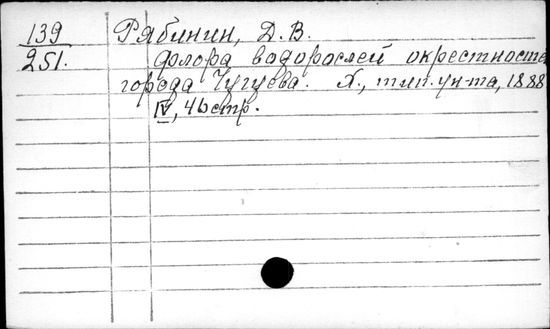 139 Рябинин, Д. В.
251. Флора водорослей окрестносте
города Чугуева. Х., тип. ун-та, 1888
IV, 46 стр.